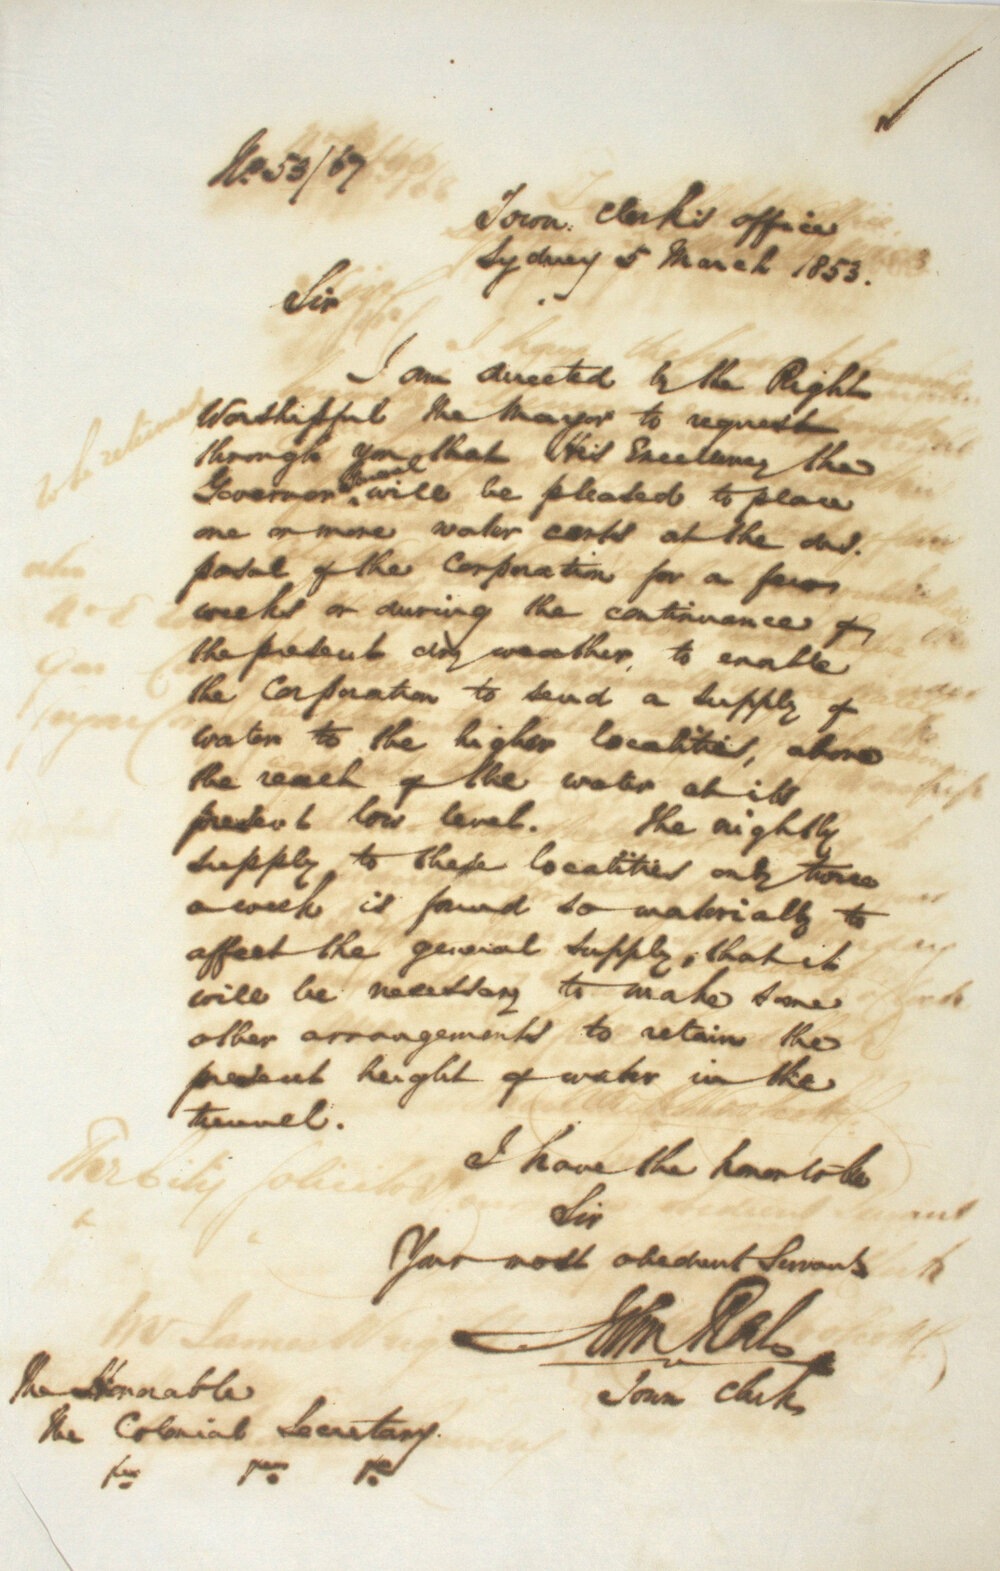 No. 53/67
Town Clerk's office
Sydney 5 March 1853.
Sir
I am directed by the Right
Worshipful the Mayor to request
through you that His Excellency the
Governor General will be pleased to place
one or more water carts at the dis-
posal of the Corporation for a few
weeks or during the continuance of
the present dry weather, to enable
the Corporation to send a supply of
water to the higher localities, above
the reach of the water at its
present low level. The nightly
supply to these localities only twice
a week is found so materially to
affect the general supply, that it
will be necessary to make some
other arrangements to retain the
present height of water in the
tunnel.
I have the honor to be
Sir
Your most obedient Servant
John Rae
Town Clerk
The Honorable
The Colonial Secretary.